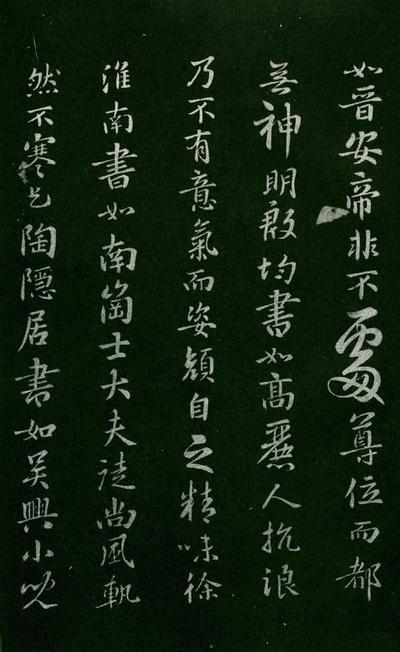 如晋安帝非不處尊位而都
無神明殷均書如高麗人抗浪
乃不有意氣而姿顔自之精味徐
淮南書如南崗士大夫徒尚風軌
然不寒乞陶隱居書如吴興小兒